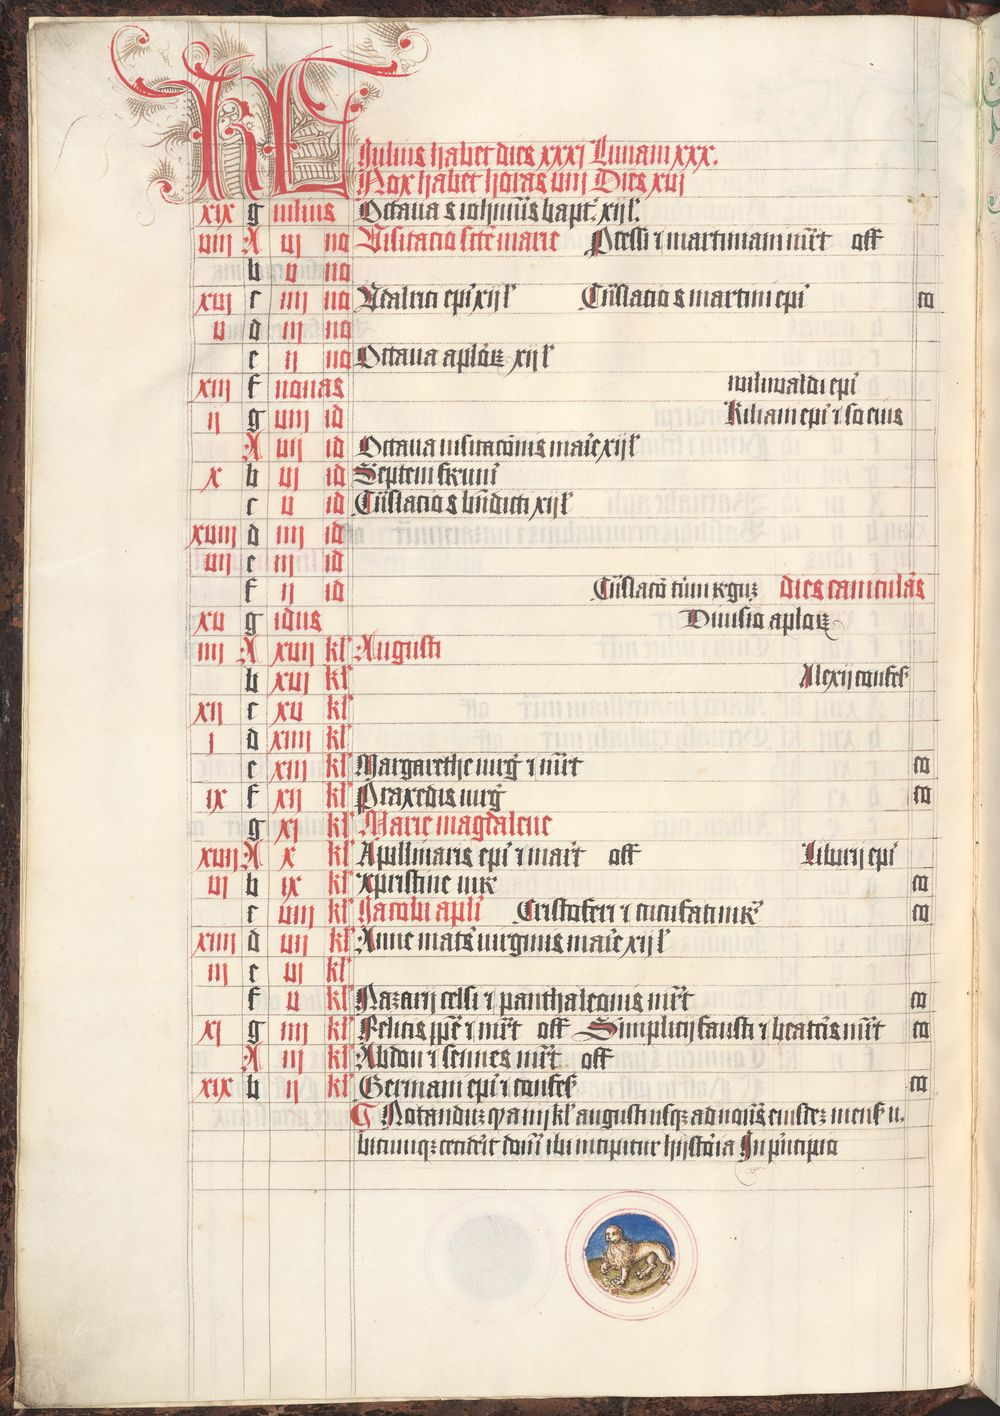 KL
Iulius habet dies xxxi Lunam xxx.
Nox habet horas viii Dies xvi
xix g iulius Octaua s iohannis bapt. xij l'.
viii A vj no Visitacio scte marie Pcessi ⁊ martiniani mrt off
b v no
xvj c iiij no Vdalrici epi xij l' Tnslacio s martini epi co
v d iij no
e ij no Octaua aplorꝫ xij l'
xiij f nonas wilwaldi epi
ij g viij id Kiliani epi ⁊ socius
A vij id Octaua visitaconis marie xij l'
x b vj id Septem frum
c v id Tnslacio s bndicti xij l'
xviij d iiij id
vij e iij id
f ij id Tnslaco tium regum dies caniculas
xv g idus Diuisio aplorꝫ
iiij A xvij kl' Augusti
b xvj kl' Alexij confes
xij c xv kl'
j d xiiij kl'
e xiij kl' Margarethe uirg ⁊ mrt co
ix f xij kl' Praxedis uirg co
g xj kl' Marie magdalene
xvij A x kl' Apollinaris epi ⁊ mart off Liborij epi
vj b ix kl' Xpistine co
c viij kl' Jacobi apli Cristoferi ⁊ cucufati co
xiiij d vij kl' Anne matris uirginis marie xij l'
iij e vj kl'
f v kl' Nazarij celsi ⁊ panthaleonis mrt co
xj g iiij kl' Felicis ppe ⁊ mrt off Simplicij fausti ⁊ beatcis mrt co
A iij kl' Abdon ⁊ sennes mrt off
xix b ij kl' Germani epi ⁊ confes co
Notanduꝫ q a iiij kl' augusti usqꝫ ad nonas eiusdeꝫ mens u.
bicumqꝫ ceciderit ibi incipitur hystoria In pricipio